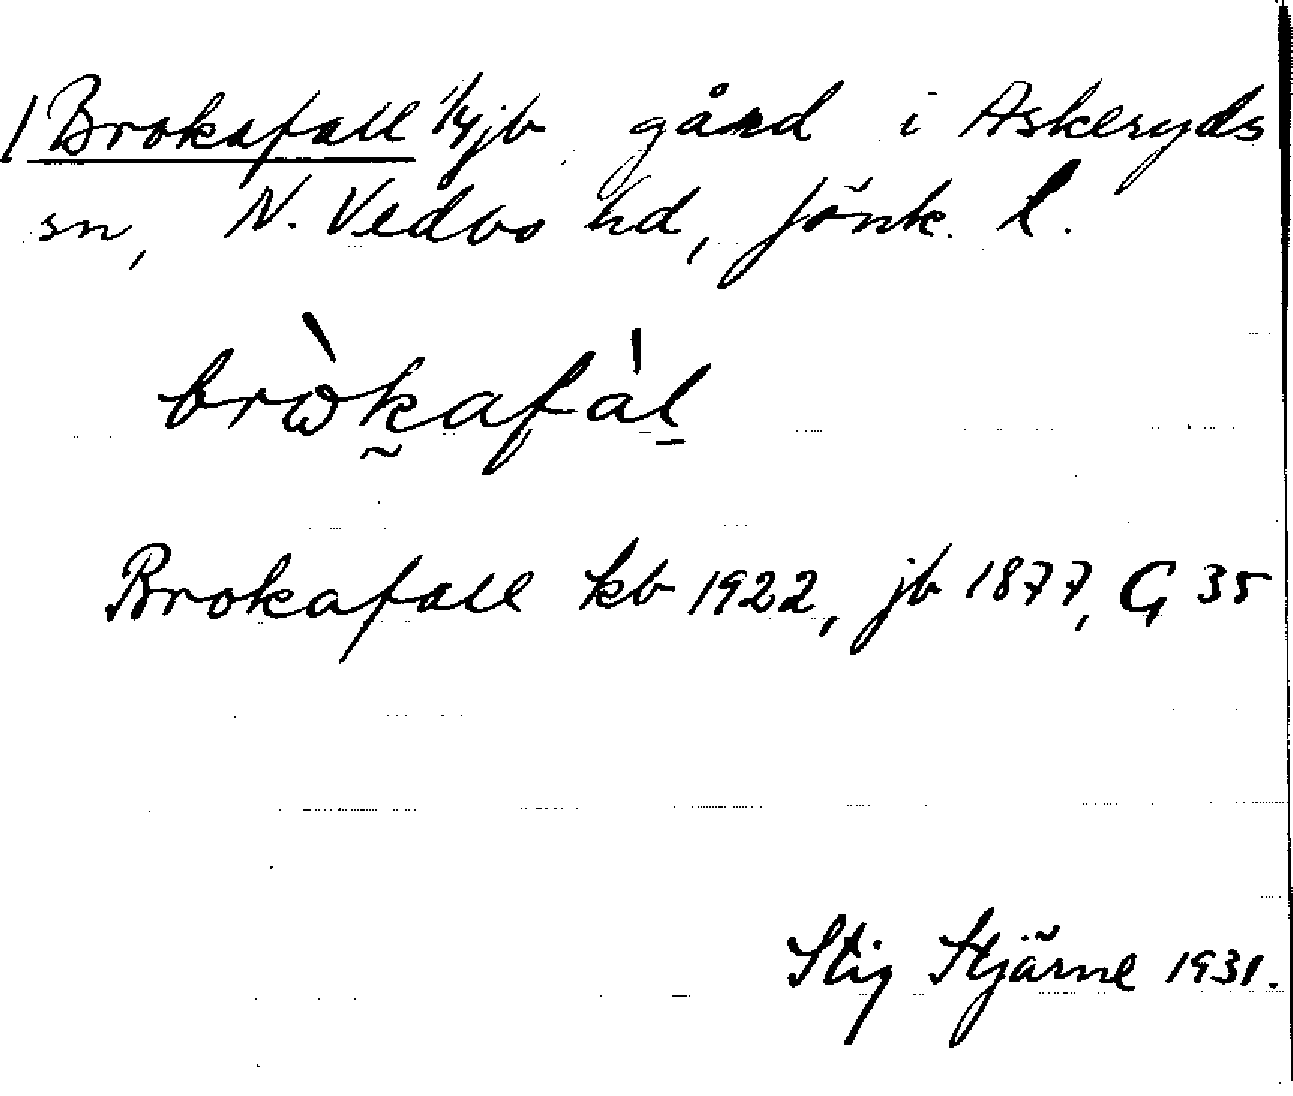 /Brokafall 1/4 jb gård i Askeryds
sn, N. Vedbo hd, Jönk. l.
brὼk̰afàl̠
Brokafall kb 1922, jb 1877, G 35
Stig Stjärne 1931.